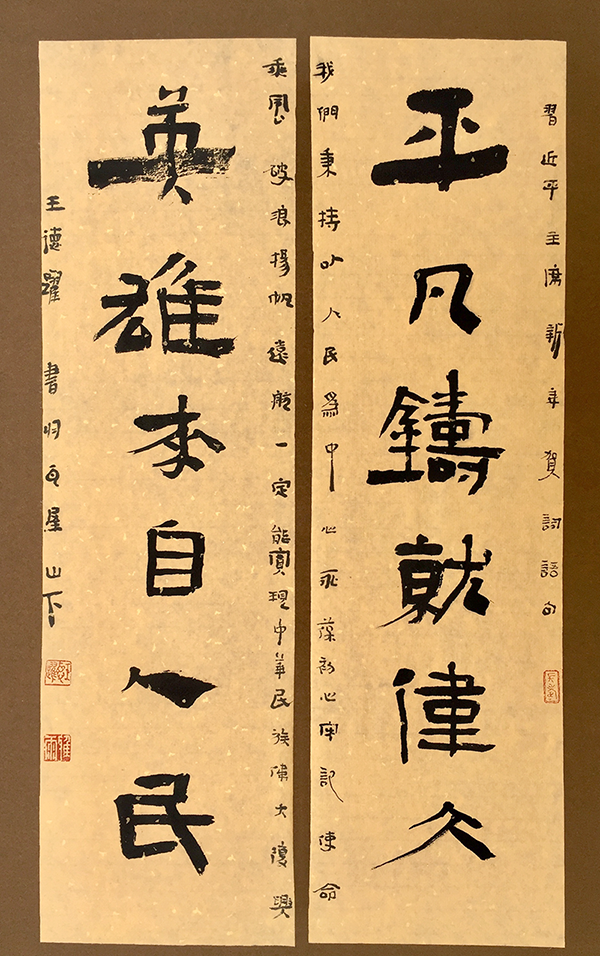 習近平主席新年賀詞語句
平凡鑄就偉大
我們秉持以人民爲中心永葆初心牢記使命
乘風破浪揚帆遠航一定能實現中華民族偉大復興
英雄来自人民
王德躍書瓦屋山下